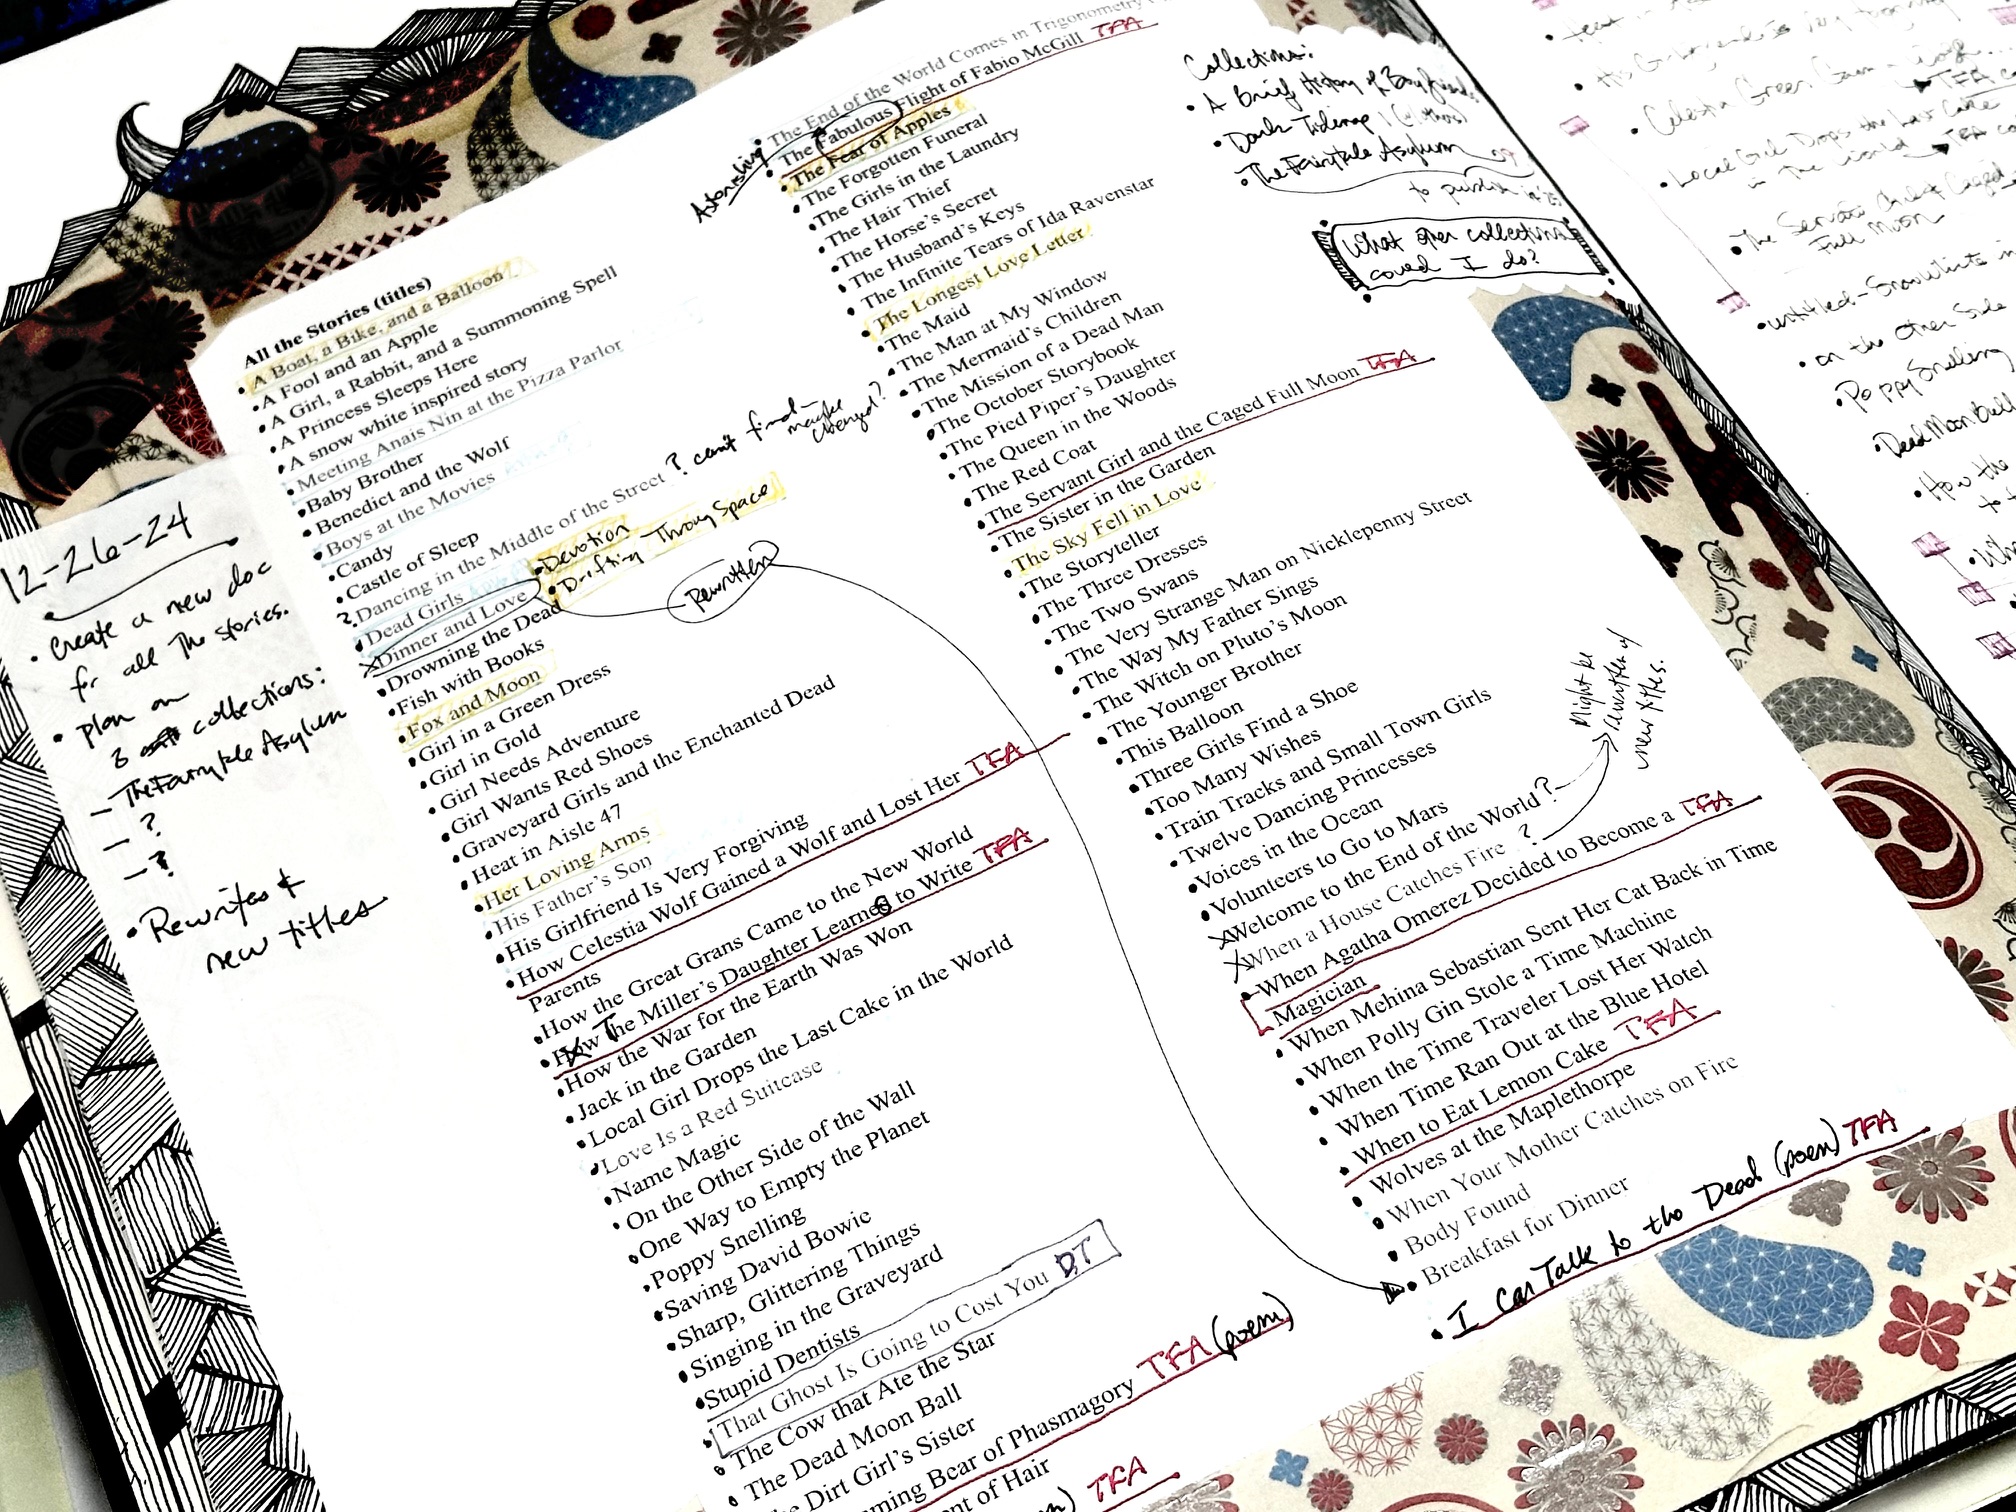 12-26-24
• Create a new doc
for all the stories.
• plan on
3 collections:
– The Fairytale Asylum
– ?
– ?
• Rewrites &
new titles
All the Stories (titles)
• A Boat, a Bike, and a Balloon
• A Fool and an Apple
• A Girl, a Rabbit, and a Summoning Spell
• A Princess Sleeps Here
• A snow white inspired story
• Meeting Anais Nin at the Pizza Parlor
• Baby Brother
• Benedict and the Wolf
• Boys at the Movies
• Candy
• Castle of Sleep
? Dancing in the Middle of the Street ? can't find–
maybe
changed?
• Dead Girls
• Devotion
• Drifting Through Space
x Dinner and Love
Rewritten
• Drowning the Dead
• Fish with Books
• Fox and Moon
• Girl in a Green Dress
• Girl in Gold
• Girl Needs Adventure
• Girl Wants Red Shoes
• Graveyard Girls and the Enchanted Dead
• Heat in Aisle 47
• Her Loving Arms
• His Father's Son
• His Girlfriend Is Very Forgiving
• How Celestia Wolf Gained a Wolf and Lost Her TFA
Parents
• How the Great Grans Came to the New World
• How The Miller's Daughter Learned to Write TFA
• How the War for the Earth Was Won
• Jack in the Garden
• Local Girl Drops the Last Cake in the World
• Love Is a Red Suitcase
• Name Magic
• On the Other Side of the Wall
• One Way to Empty the Planet
• Poppy Snelling
• Saving David Bowie
• Sharp, Glittering Things
• Singing in the Graveyard
• Stupid Dentists
• That Ghost Is Going to Cost You DT
• The Cow that Ate the Star
• The Dead Moon Ball
• The Dirt Girl's Sister
Bear of Phasmagory TFA (poem)
of Hair
TFA
• The End of the World Comes in Trigonometry
• The Fabulous Flight of Fabio McGill TFA
Astonishing
• The Fear of Apples
• The Forgotten Funeral
• The Girls in the Laundry
• The Hair Thief
• The Horse's Secret
• The Husband's Keys
• The Infinite Tears of Ida Ravenstar
• The Longest Love Letter
• The Maid
• The Man at My Window
• The Mermaid's Children
• The Mission of a Dead Man
• The October Storybook
• The Pied Piper's Daughter
• The Queen in the Woods
• The Red Coat
• The Servant Girl and the Caged Full Moon TFA
• The Sister in the Garden
• The Sky Fell in Love
• The Storyteller
• The Three Dresses
• The Two Swans
• The Very Strange Man on Nicklepenny Street
• The Way My Father Sings
• The Witch on Pluto's Moon
• The Younger Brother
• This Balloon
• Three Girls Find a Shoe
• Too Many Wishes
• Train Tracks and Small Town Girls
• Twelve Dancing Princesses
• Voices in the Ocean
• Volunteers to Go to Mars
x Welcome to the End of the World ?
x When a House Catches Fire ?
Might be
new titles.
• When Agatha Omerez Decided to Become a TFA
Magician
• When Mehina Sebastian Sent Her Cat Back in Time
• When Polly Gin Stole a Time Machine
• When the Time Traveler Lost Her Watch
• When Time Ran Out at the Blue Hotel
• When to Eat Lemon Cake TFA
• Wolves at the Maplethorpe
• When Your Mother Catches on Fire
• Body Found
• Breakfast for Dinner
• I Can Talk to the Dead (poem) TFA
Collections:
• A Brief History of Boyfriends
• Dark Tidings
• The Fairytale Asylum
to publish in '25
What other collections
could I do?
• His Girlfriend is Very
• Celestia Green
TFA
• Local Girl Drops the Last Cake
in the World
• The Servant Girl & Caged
Full Moon
• untitled–Snow White
• on the Other Side
• Poppy Snelling
• Dead Moon Ball
• How the